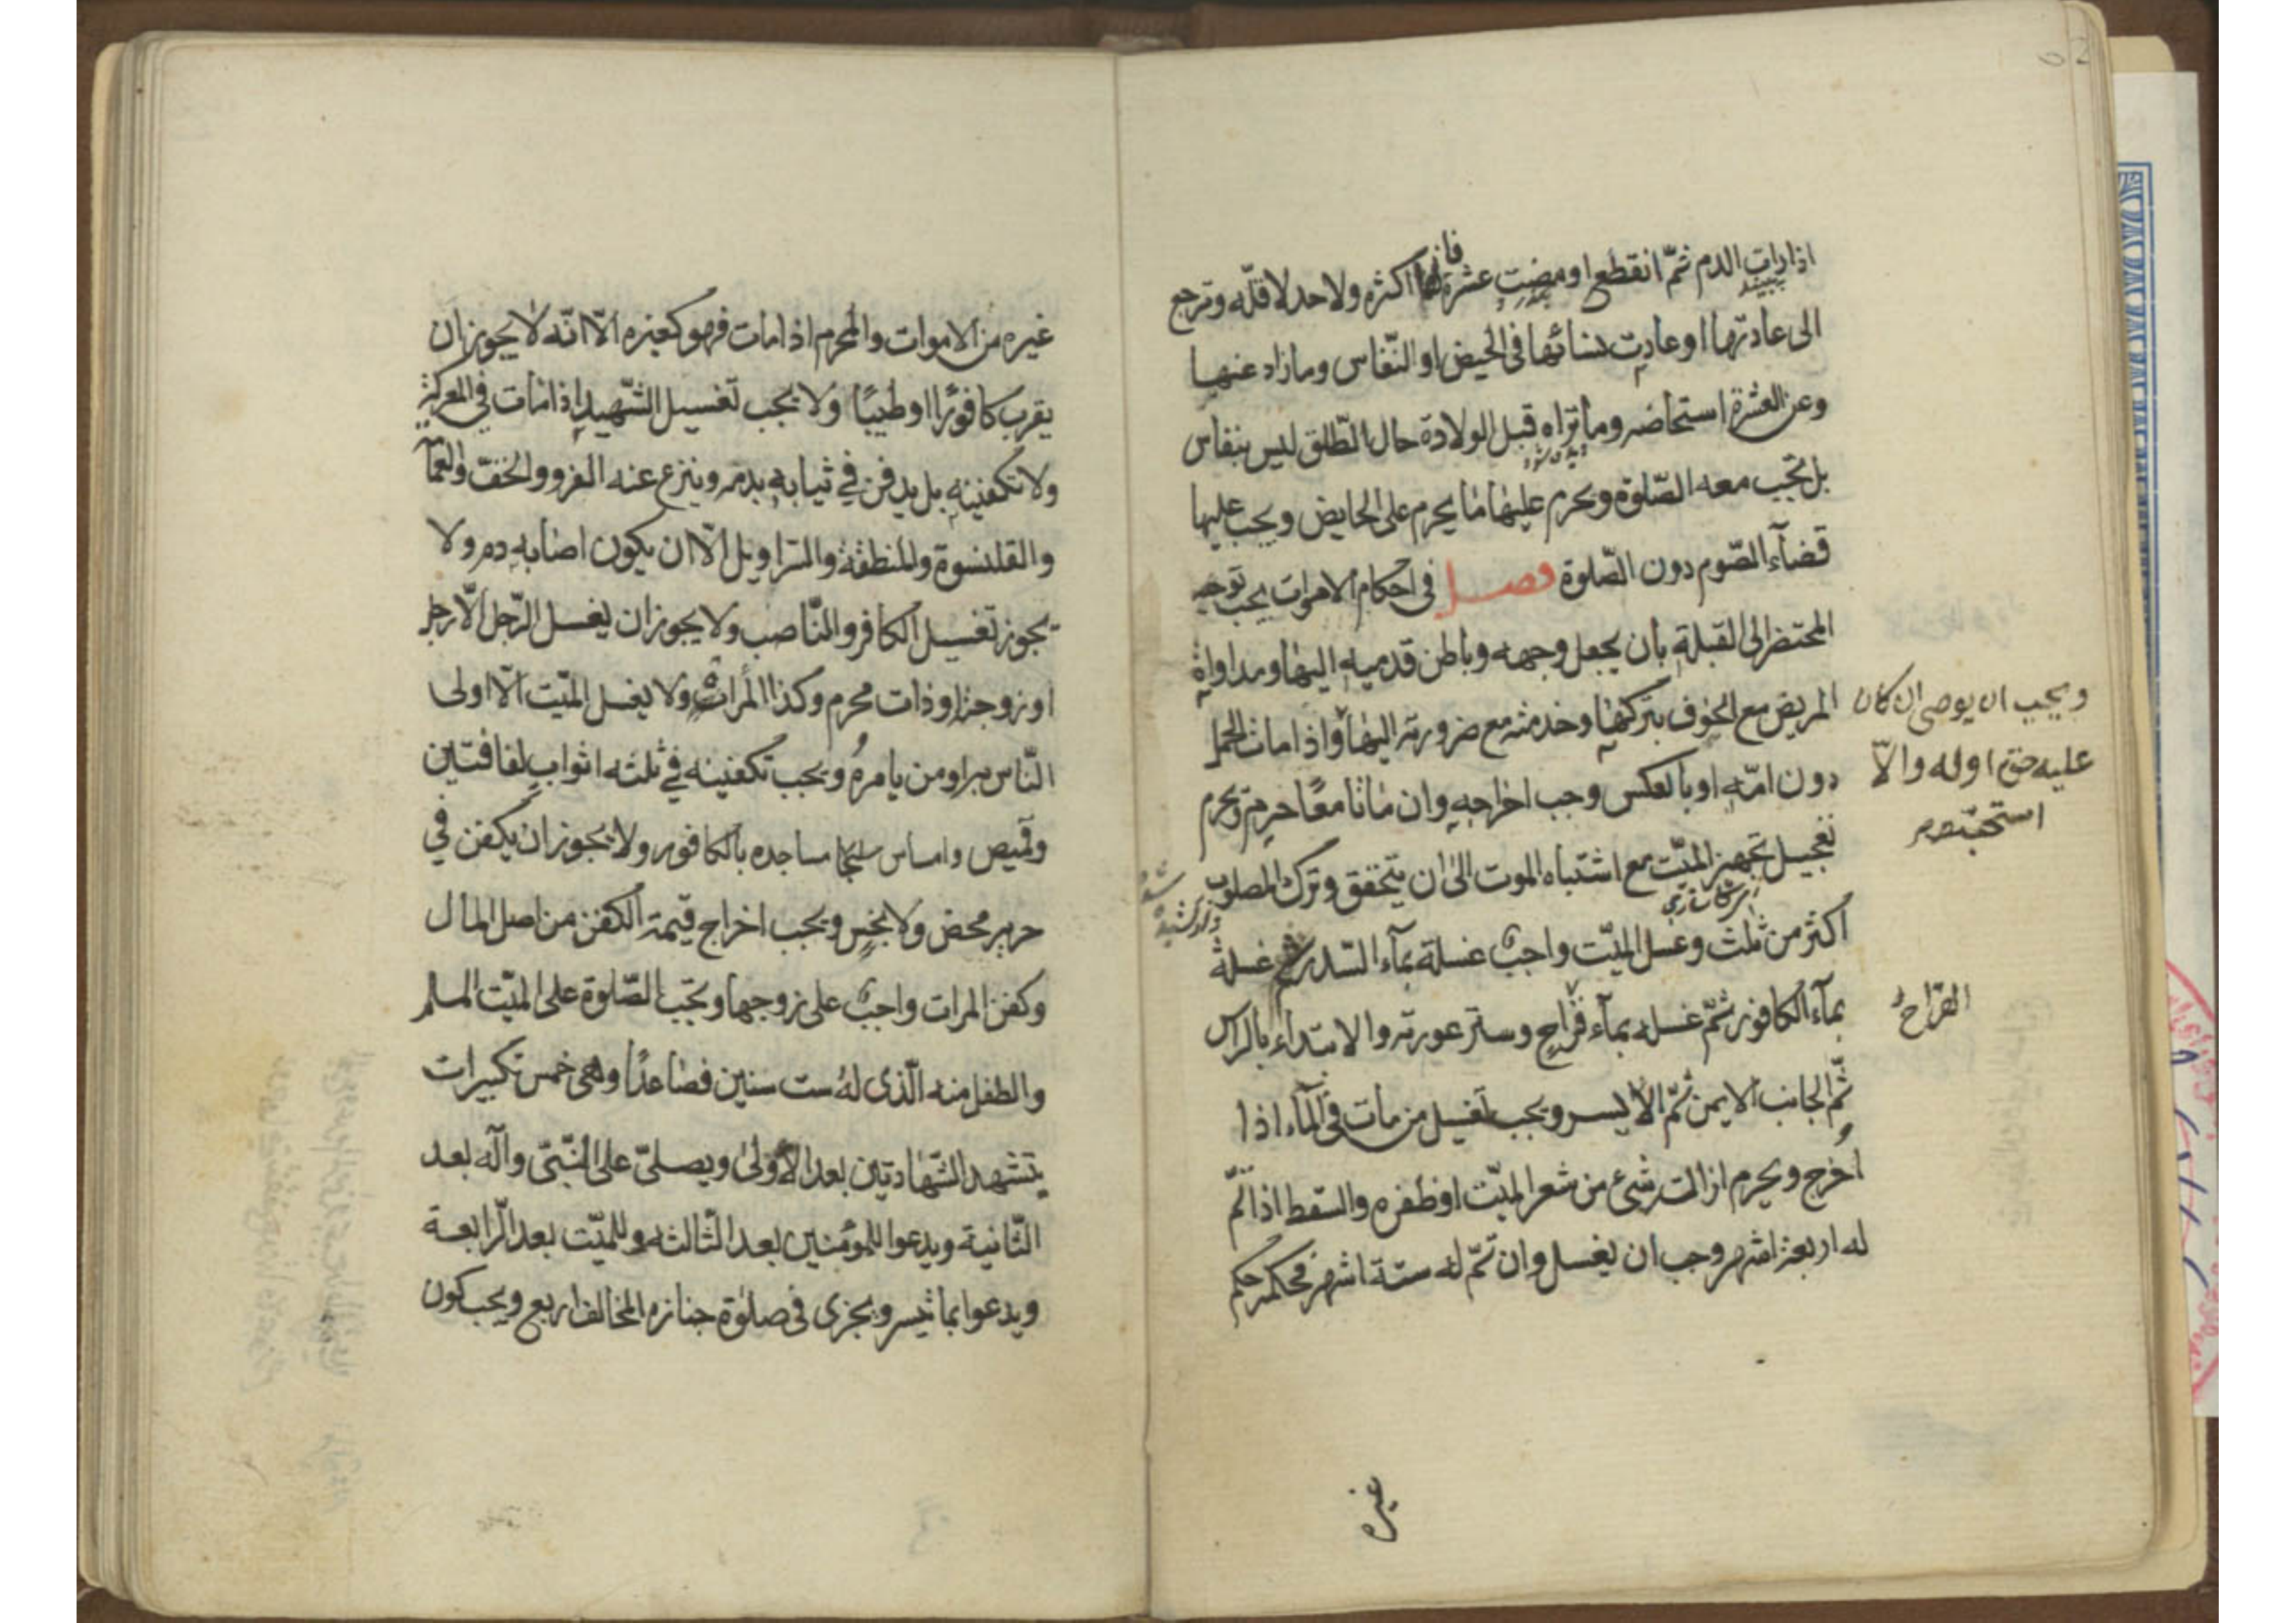 اذا رات الدم ثمّ انقطع او مضت عشرة فانها اكثره ولا حد لاقلّه وترجع
الى عادتها او عادت نسائها فى الحيض او النّفاس وما زاد عنهــا
وعن العشرة استحاضه وما تراه قبل الولادة حال الطّلق ليس بنفاس
بل تجب معه الصّلوة ويحرم عليها ما يحرم على الحايض ويجب عليها
قضآء الصّوم دون الصّلوة فصــل فى احكام الاموات يجب توجيه
المحتضر الى القبلة بان يجعل وجهه وباطن قدميه اليها ومداواة
المريض مع الخوف بتركها وخدمته مع ضرورته اليها واذا مات الحمل
دون امّه او بالعكس وجب اخراجه وان ماتا معًا حرم ويحرم
تعجيل تجهيز الميّت مع اشتباه الموت الى ان يتحقق وترك المصلوب
اكثر من ثلث وغسل الميّت واجب غسلة بمآء السّدر ثم غسلة
بمآء الكافور ثمّ غسله بمآء قراح وستر عورته والابتداء بالراس
ثمّ الجانب الايمن ثمّ الايسر ويجب تغسيل من مات فى المآء اذا
اخرج ويحرم ازالت شىء من شعر الميّت او ظفره والسّقط اذا تمّ
له اربعة اشهر وجب ان يغسل وان تمّ له ستة اشهر فحكمه حكم
غيره
ويجب ان يوصى ان كان
عليه حق او له والّا
استحبّ
القراح
غيره من الاموات والمحرم اذا مات فهو كغيره الّا انّه لا يجوز ان
يقرب كافورًا او طيبًا ولا يجب تغسيل الشّهيد اذا مات فى المعركة
ولا تكفينه بل يدفن فى ثيابه بدمه وينزع عنه الفرو والخفّ والعمآ
والقلنسوة والمنطقة والسّراويل الّا ان يكون اصابه دم ولا
يجوز تغسيل الكافر والنّاصب ولا يجوز ان يغسل الرّجل الّا رجل
او زوجة او ذات محرم وكذا المرات ولا يغسل الميّت الّا اولى
النّاس به او من يامره ويجب تكفينه فى ثلثه اثواب لفافتين
وقميص وامساس مساجده بالكافور ولا يجوز ان يكفن فى
حرير محض ولا نجس ويجب اخراج قيمة الكفن من اصل المال
وكفن المرات واجب على زوجها وتجب الصّلوة على الميّت المسلم
والطفل منه الّذى له ست سنين فصاعدًا وهى خمس تكبيرات
يتشهد الشّهادتين بعد الاولى ويصلّى على النّبىّ وآله بعد
الثّانية ويدعوا للمؤمنين بعد الثّالثه وللميّت بعد الرّابعة
ويدعوا بما تيسر ويجزى فى صلوة جنازه المخالف اربع ويجب كون